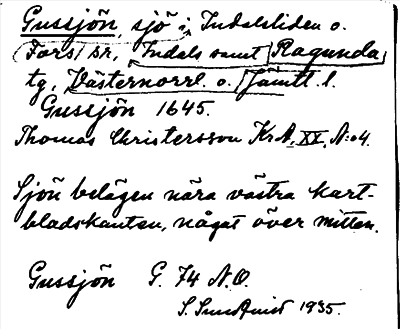 Gussjön, sjö i Indalsliden o.
Fors sr, Indals samt Ragunda
tg, Västernorrl. o. Jämtl. l.
Gussjön 1645.
Thomas Christersson K.A. XX, N:o 4.
Sjön belägen nära västra kart-
bladskanten, något över mitten.
Gussjön G. 74 N.O.
S. Sundquist 1935.